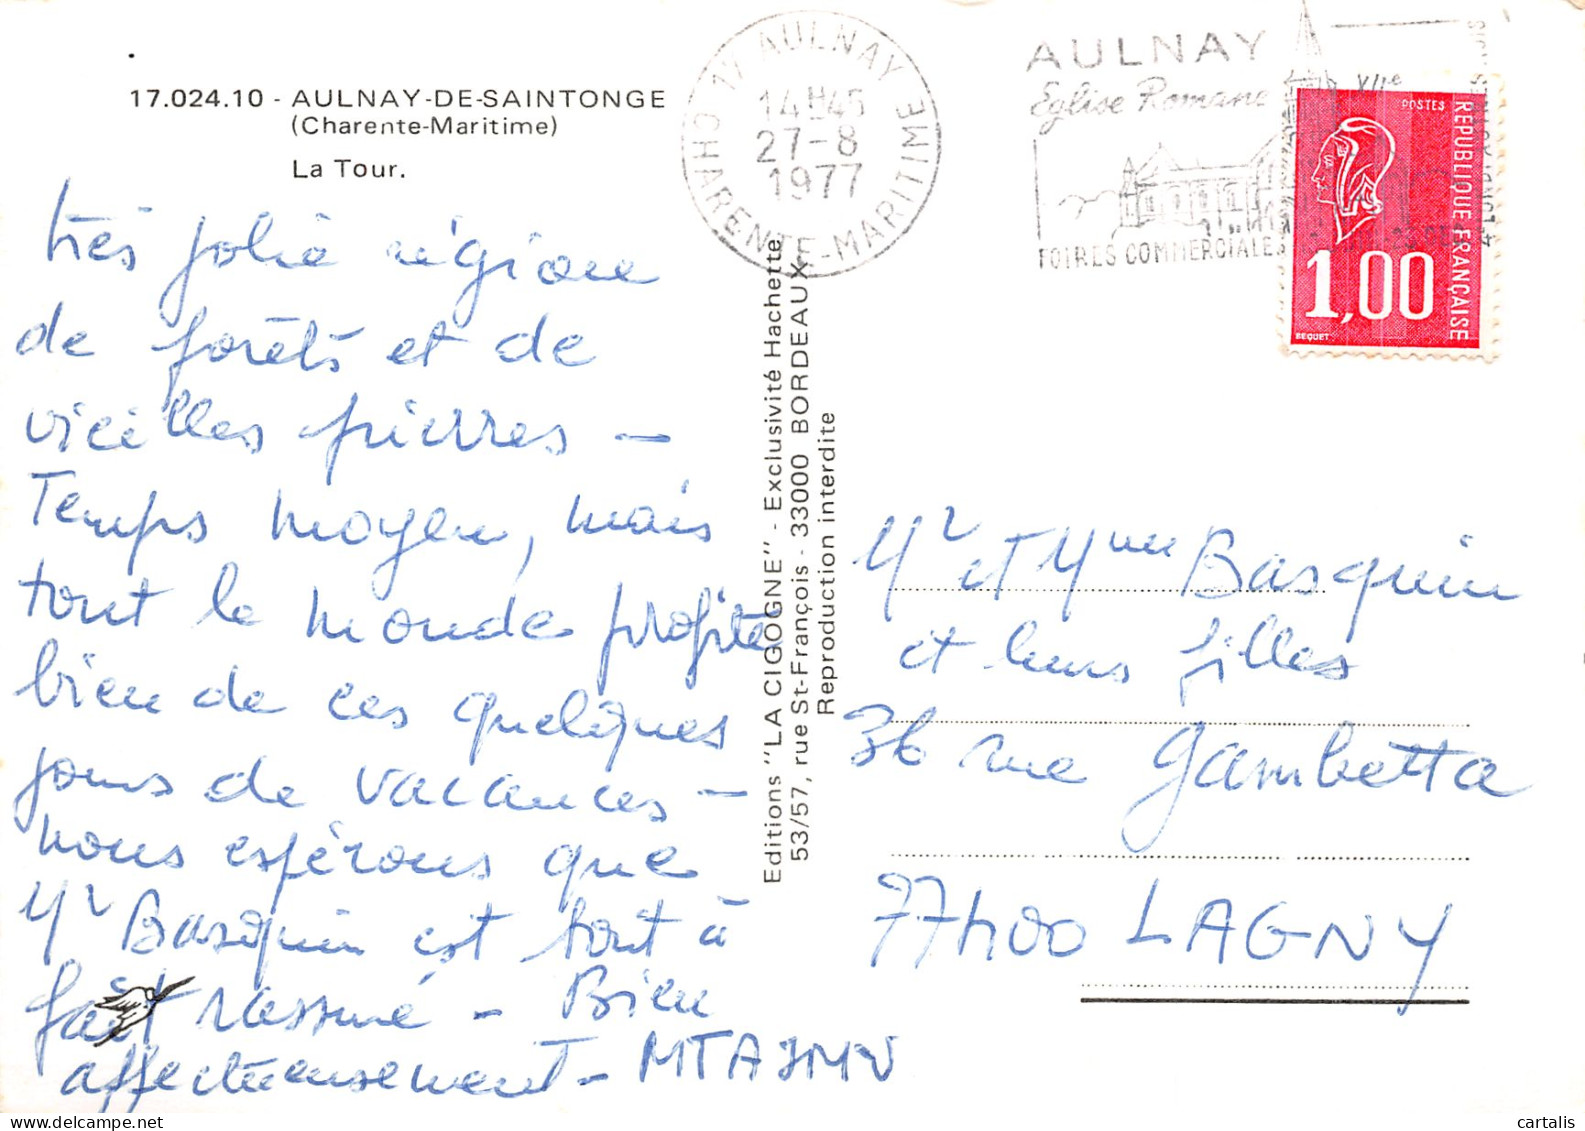 17.024.10 - AULNAY-DE-SAINTONGE
(Charente-Maritime)
La Tour.
très jolie région
de forêts et de
vieilles pierres -
Temps moyen, mais
tout le monde profite
bien de ces quelques
jours de vacances -
nous espérons que
Mr Basquin est tout à
fait rassuré - Bien
affectueusement - MTAJMV
Editions "LA CIGOGNE" - Exclusivité Hachette
53/57, rue St-François - 33000 BORDEAUX
Reproduction interdite
17 AULNAY
14H45
27-8
1977
CHARENTE-MARITIME
AULNAY
Eglise Romane
XIIe
FOIRES COMMERCIALES
POSTES
REPUBLIQUE FRANÇAISE
1,00
BEQUET
Mr et Mme Basquin
et leurs filles
36 rue Gambetta
77400 LAGNY
cartalis
www.delcampe.net